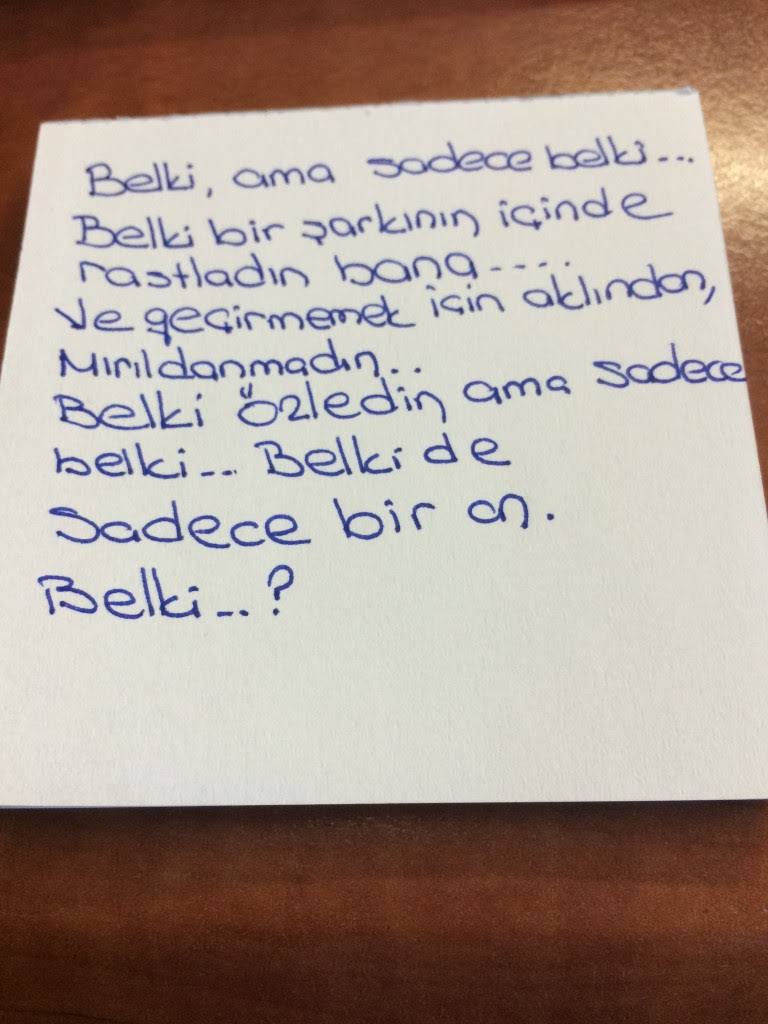 Belki, ama sadece belki...
Belki bir şarkının içinde
rastladın bana....
Ve geçirmemek için aklından,
Mırıldanmadın..
Belki özledin ama sadece
belki... Belki de
Sadece bir an.
Belki...?